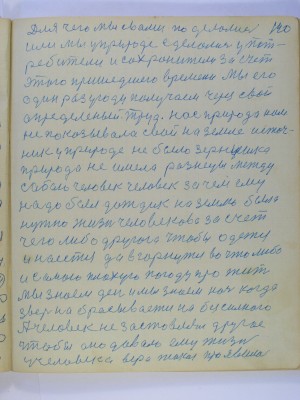 120
Для чего мы свами по делами
или мы у природе сделались у пот-
ребители и сохранители за счет
этого пришедшего времени мы его
один раз у году получаем через свой
определенный труд. нас природа нам
не показывала свой на земле источ-
ник у природе не было зерна
природа не имела разницы между
собою человек человек за чем ему
надо был дождик на землю была
нужно жизнь человекова за счет
чего либо другого чтобы одется
и наестся да в горнуться во что либо
и самою плохую погоду прожить
мы знаем ден и мы знаем ноч когда
звер на брасывается на бессильного
А человек не заставляет другое
чтобы оно давало ему жизнь
у человека вера такая появила